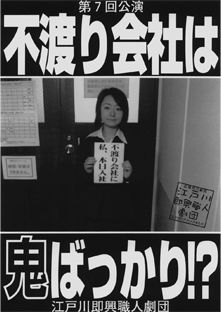 第7回公演
不渡り会社は
不渡り会社に
私、本日入社
江戸川
即興職人
劇団
鬼ばっかり!?
江戸川即興職人劇団